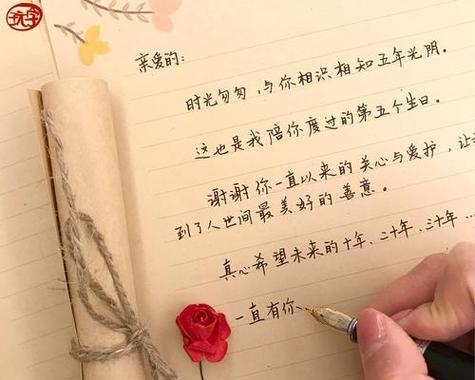 亲爱的:
时光匆匆,与你相识相知五年光阴。
这也是我陪你度过的第五个生日。
谢谢你一直以来的关心与爱护,让
到了人世间最美好的善意。
真心希望未来的十年、二十年、三十年
一直有你